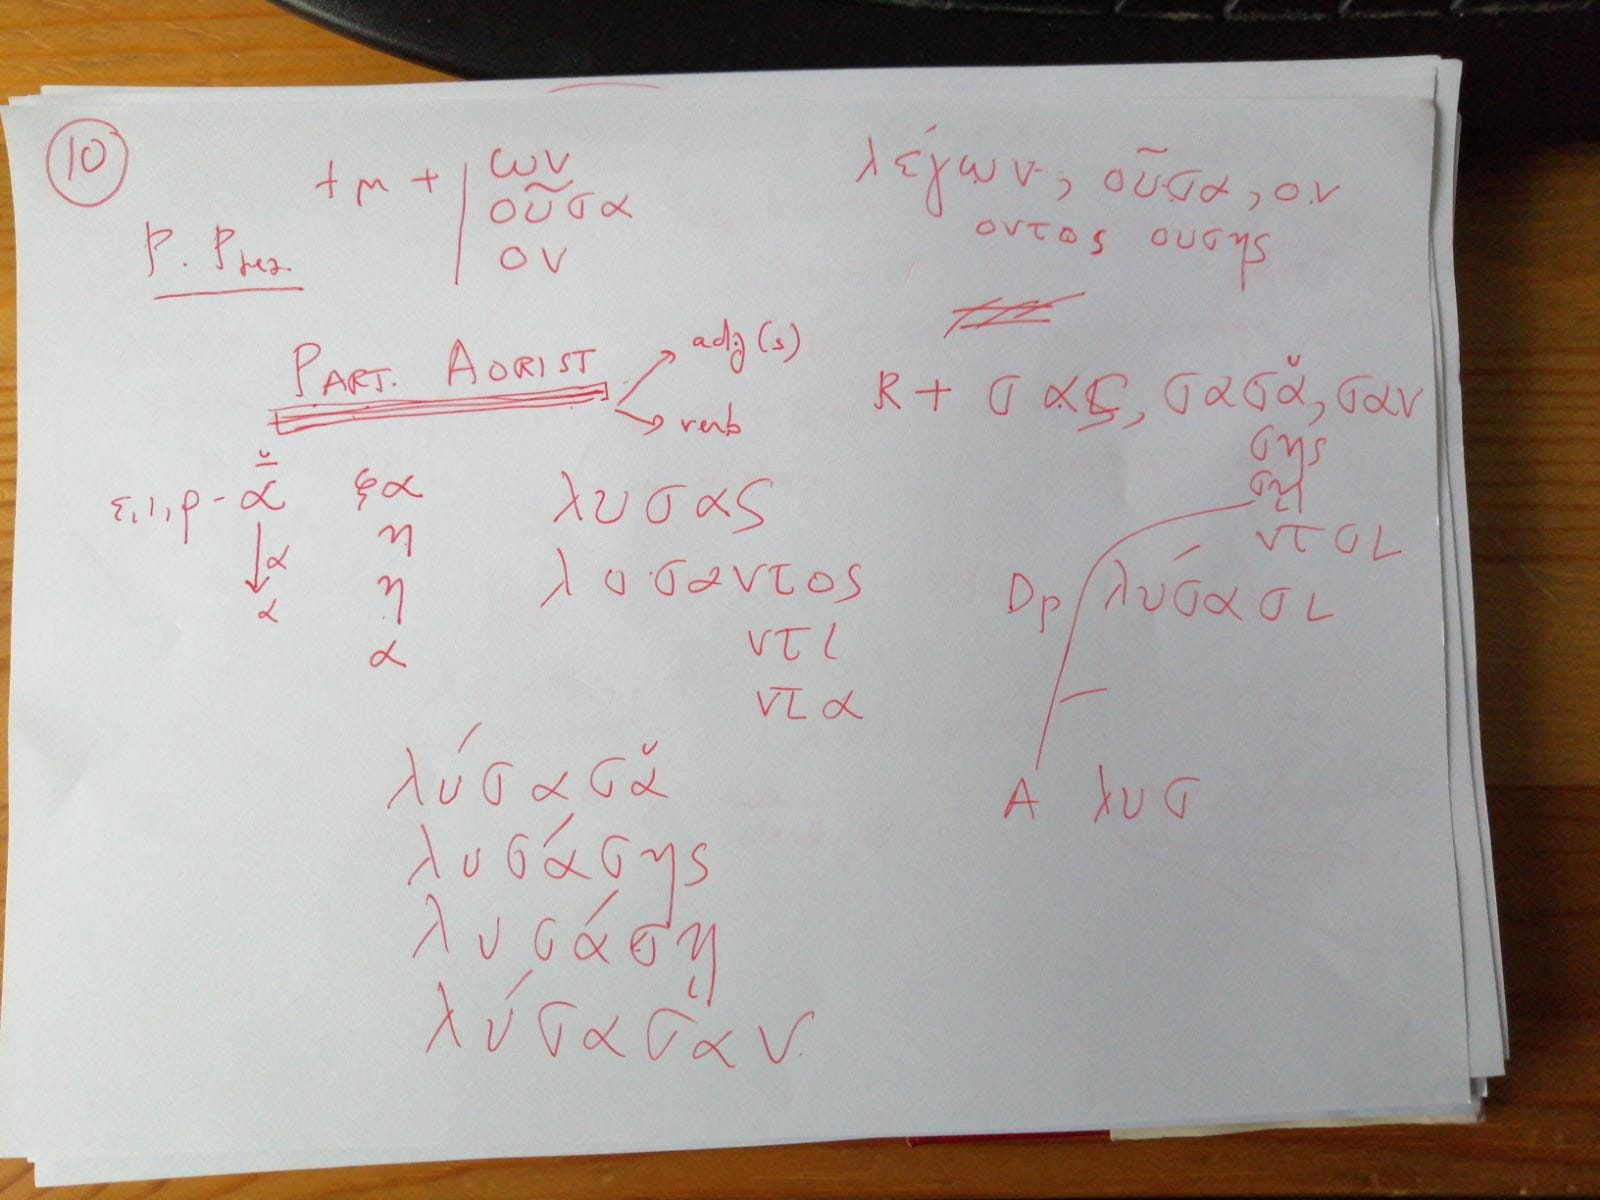 10
+ m + ων
οῦσα
ον
P. Prez.
λέγων, οῦσα, ον
οντος ουσης
PART. AORIST
adj(s)
verb
R + σας, σασᾰ, σαν
σης
σῃ
ντσι
ε, ι, ρ - ᾰ
α
α
α
η
η
α
λυσας
λυσαντος
ντι
ντα
Dp λύσασι
λύσασᾰ
λυσάσης
λυσάσῃ
λύσασαν
A λυσ